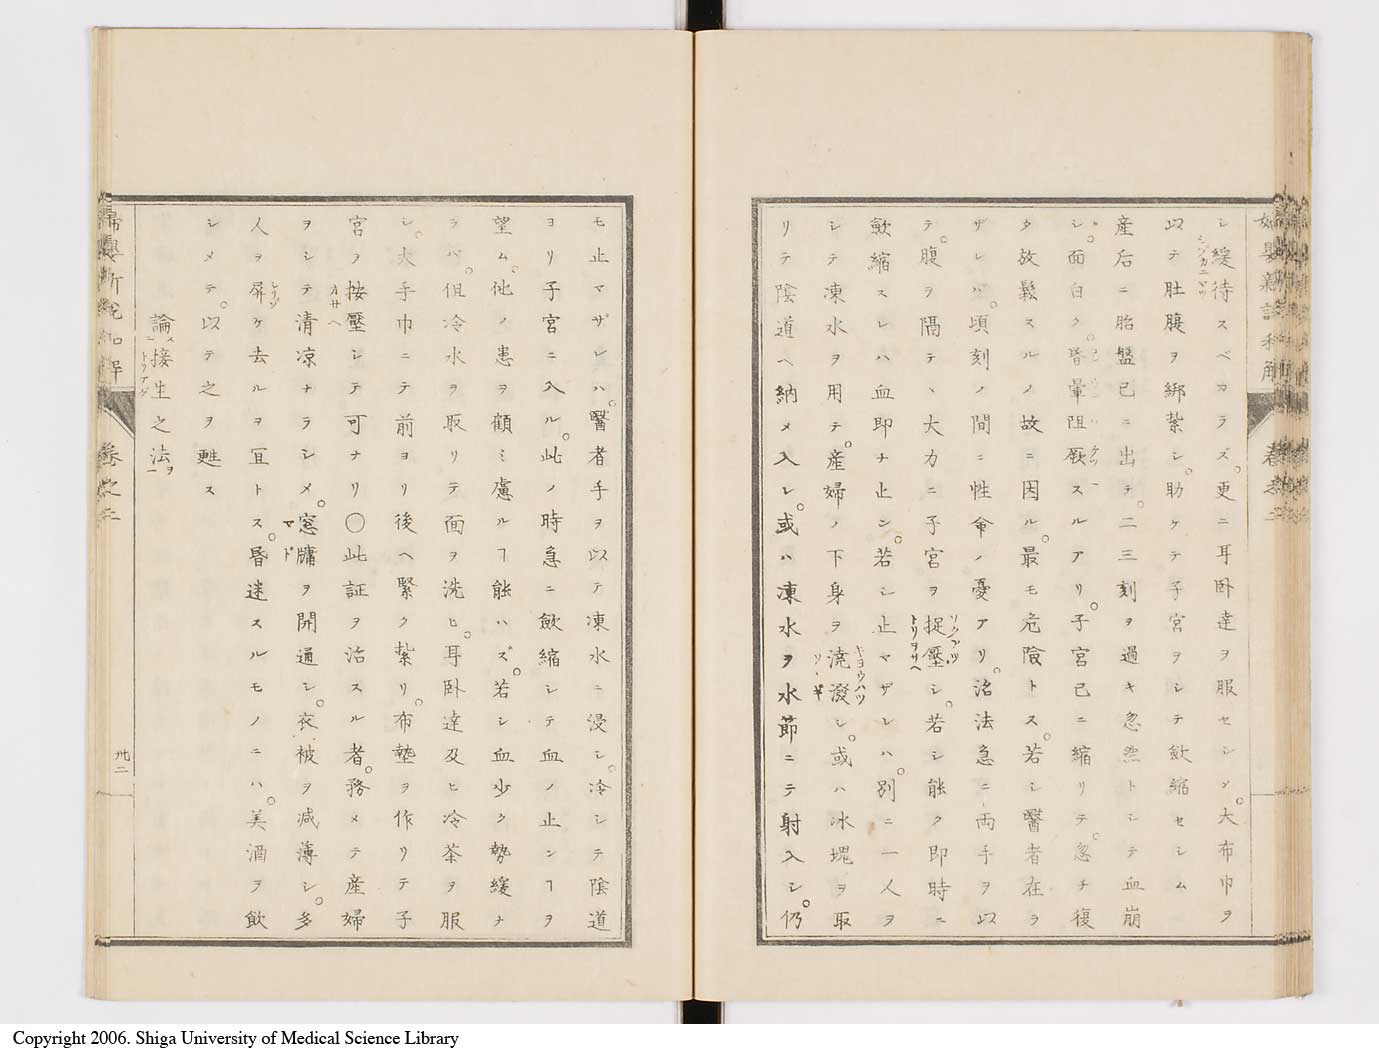 シ緩待スベカラズ。更ニ耳卧達ヲ服セシメ。大布巾ヲ
シヅカニマツ
以テ肚腹ヲ綁紮シ。助ケテ子宮ヲシテ歛縮セシム
産后ニ胎盤已ニ出テ。二三刻ヲ過キ忽然トシテ血崩
シ。面白ク。昏暈阻厥スルアリ。子宮已ニ縮リテ。忽チ復
タ放鬆スルノ故ニ因ル。最モ危険トス。若シ醫者在ラ
ザレバ。頃刻ノ間ニ性命ノ憂アリ。治法急ニ両手ヲ以
テ。腹ヲ隔テヽ大力ニ子宮ヲ捉壓シ。若シ能ク即時ニ
ソクアツ
トリヲサヘ
歛縮スレハ血即チ止ン。若シ止マザレハ。別ニ一人ヲ
シテ凍水ヲ用テ。産婦ノ下身ヲ澆潑シ。或ハ冰塊ヲ取
ギヨウハツ
ソヽギ
リテ陰道ヘ納メ入レ。或ハ凍水ヲ水節ニテ射入シ。仍
婦嬰新説和解
巻之二
モ止マザレハ。醫者手ヲ以テ凍水ニ浸シ。冷シテ陰道
ヨリ子宮ニ入ル。此ノ時急ニ歛縮シテ血ノ止ンヿヲ
望ム。他ノ患ヲ顧ミ慮ルヿ能ハズ。若シ血少ク勢緩ナ
ラバ。但冷水ヲ取リテ面ヲ洗ヒ。耳卧達及ヒ冷茶ヲ服
シ。大手巾ニテ前ヨリ後ヘ緊ク紮リ。布墊ヲ作リテ子
宮ヲ按壓シテ可ナリ〇此証ヲ治スル者。務メテ産婦
カサヘ
ヲシテ清凉ナラシメ。窓牗ヲ開通シ。衣被ヲ減薄シ。多
マド
人ヲ屏ケ去ルヲ宜トス。昏迷スルモノニハ。美酒ヲ飲
シリゾ
シメテ。以テ之ヲ甦ス
論接生之法
トリアゲ
婦嬰新説和解
巻之二
卅二
Copyright 2006. Shiga University of Medical Science Library